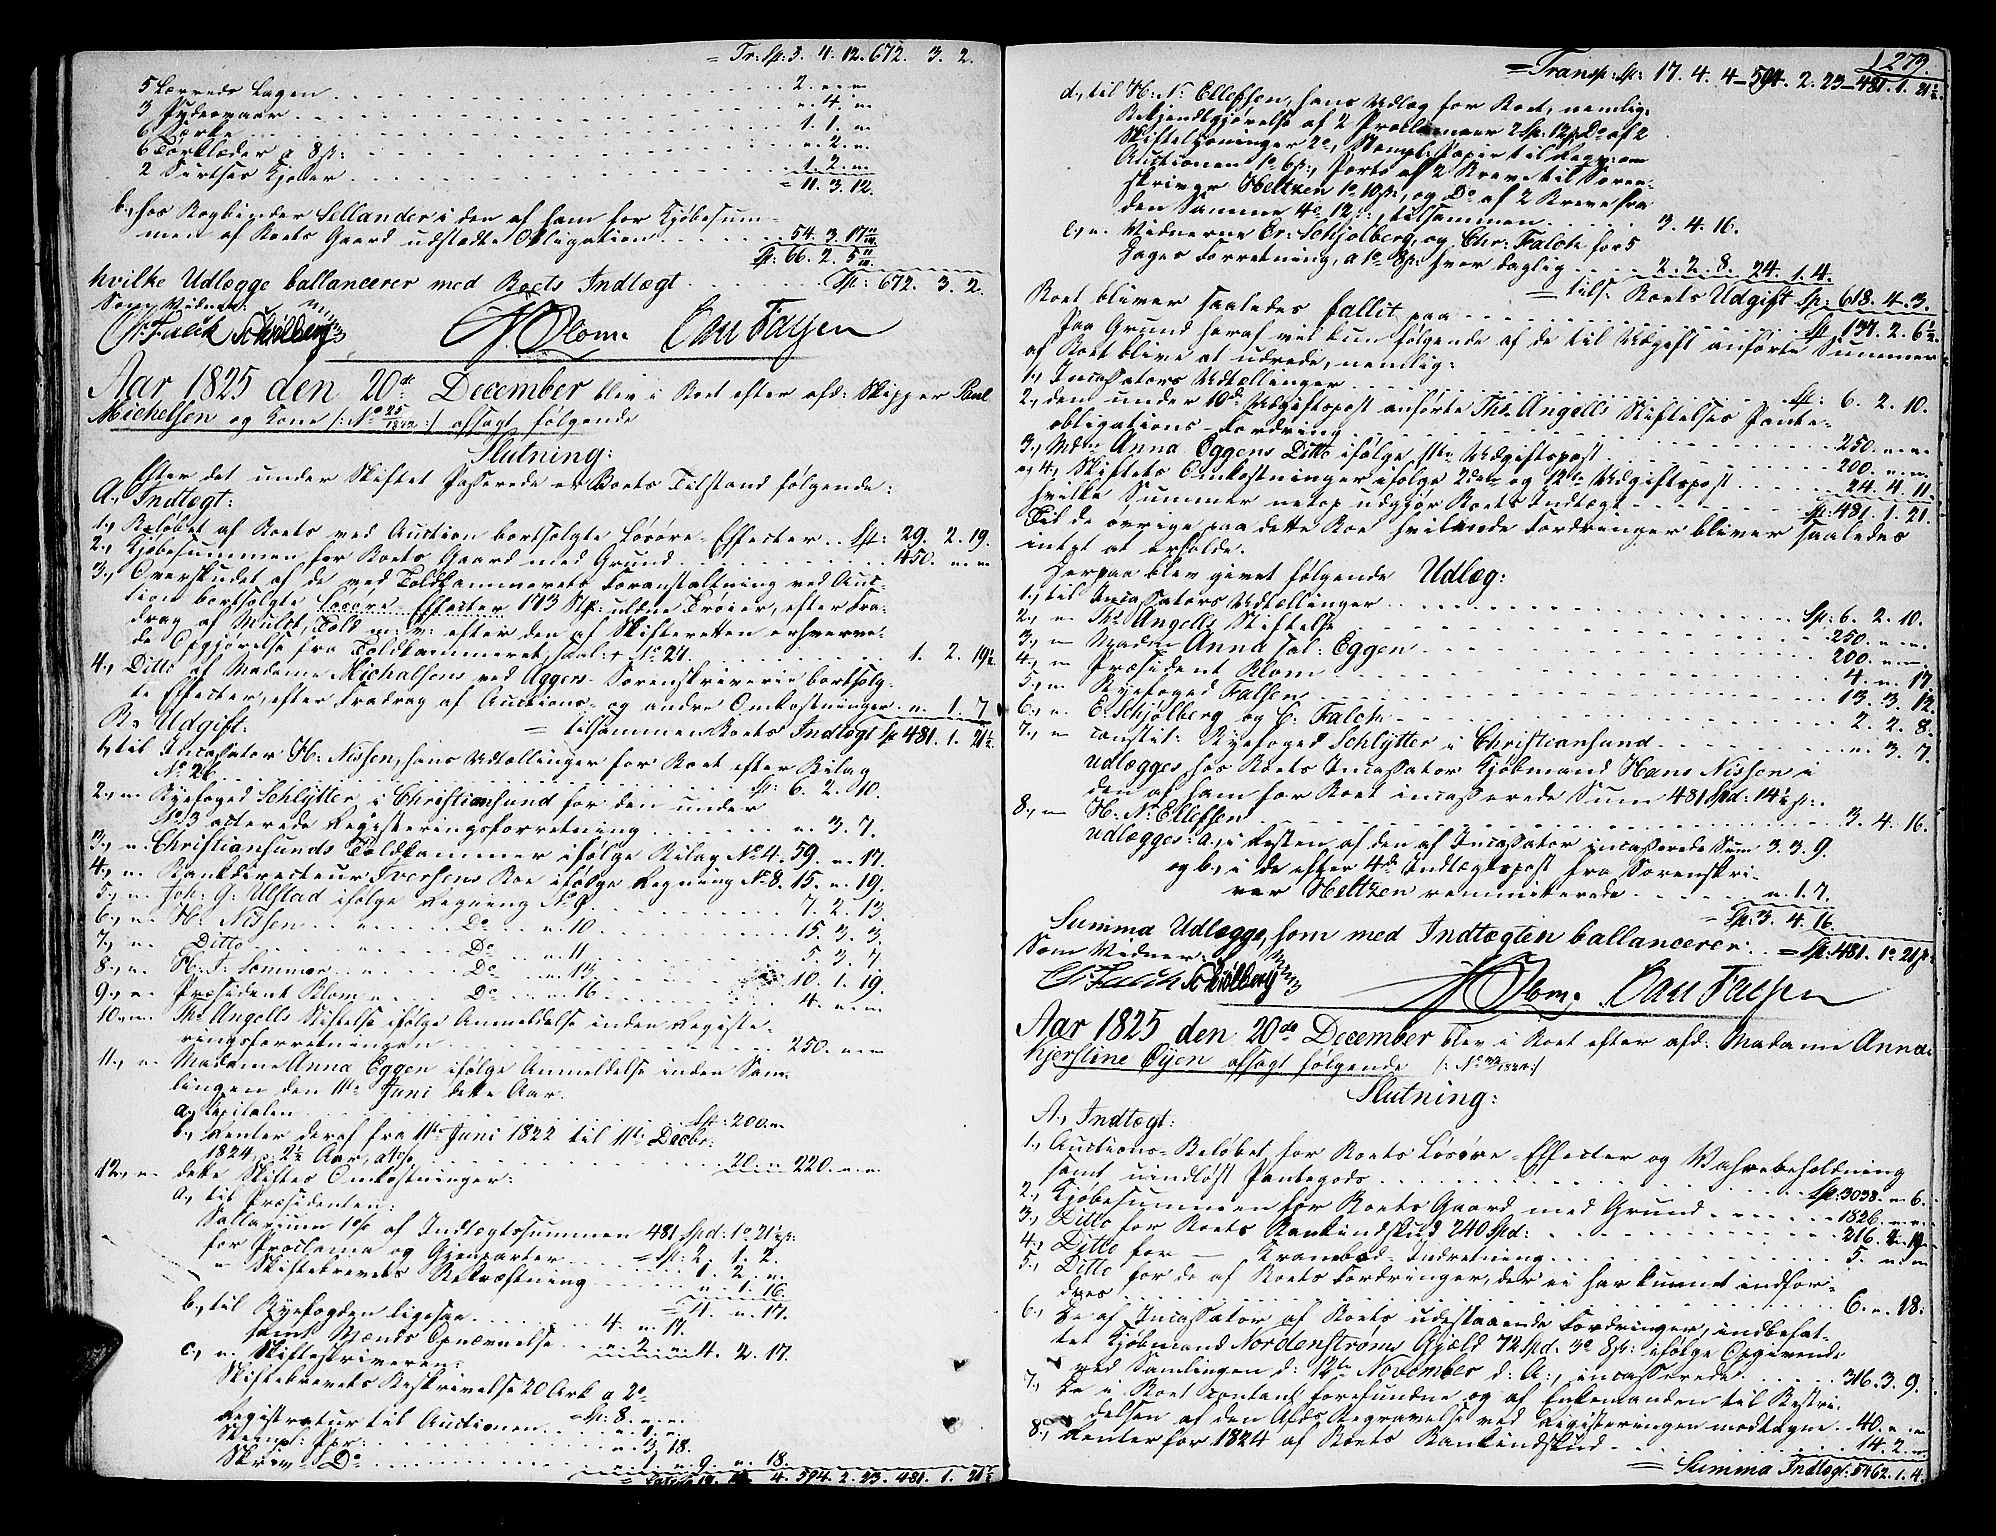 = Tr: Sp: 3. 4. 12. 672. 3. 2.
5 Lærreds Lagen . . . 2. " "
3 Pudevaar . . . " 4. "
6 Særke . . . 1. 1. "
6 Tørklæder a 8 s: . . . " 2. "
2 Kjoler . . . 1. 2. "
= 11. 3. 12.
b., hos Bogbinder Sellander i den af ham for Kjøbesum-
men af Boets Gaard udstedte Obligation . . . 54. 3. 17
Sp: 66. 2. 5
hvilke Udlægge ballancerer med Boets Indtægt . . . Sp: 672. 3. 2.
Som Vidner:
C. Falch Schiølberg Blom. Carl Falsen
Aar 1825 den 20de December blev i Boet efter afd: Skipper Paul
Michelsen og Kone /: No 25/1822 :/ afsagt følgende
Slutning:
Efter det under Skiftet Passerede er Boets Tilstand følgende:
A., Indtægt:
1., Beløbet af Boets ved Auction bortsolgte Løsøre-Effecter . . Sp: 29. 2. 19.
2., Kjøbesummen for Boets Gaard med Grund . . . 450. " "
3., Overskudet af de ved Toldkammerets Foranstaltning ved Auc-
tion bortsolgte Løsøre-Effecter 173 Stk: uldne Trøier, efter Fra-
drag af Mulct, Told m: v: efter den af Skifteretten erhverve-
de Opgjørelse fra Toldkammeret, 21. . . . 1. 2. 19½.
4., Ditto af Madame Michalsens ved Sorenskriverie bortsolg-
te Effecter, efter Fradrag af Auctions- og andre Omkostninger " 1. 7.
= tilsammen Boets Indtægt Sp 481. 1. 21½.
B., Udgift:
1., til Incassator H: Nissen, hans Udtællinger for Boet efter Bilag
No 26 . . . Sp: 6. 2. 10.
2., " Byefoged Schlytter i Christiansund for den under
No 3 acterede Registeringsforretning . . . " 3. 7.
3., " Christiansunds Toldkammer ifølge Bilag No 4. 59. " 17.
4., " Bankdirecteur Iversens Boe ifølge Regning No 8. 15. " 19.
5., " Joh: G: Ulstad ifølge Regning No 9 . . . 7. 2. 13.
6., " H: Nissen " Do " 10 . . . 15. 3. 3.
7., " Ditto " Do " 11 . . . 5. 3. 7.
8., " H: F: Sommer " Do " 13 . . . 10. 1. 19.
9., " Præsident Blom " Do " 16 . . . 4. " "
10., " Ths Angells Stiftelse ifølge Anmeldelse inden Registe-
ringsforretningen . . . 250. " "
11., " Madame Anna Eggen ifølge Anmeldelse inden Sam-
lingen den 11te Juni dette Aar.
a., Capitalen . . . Sp: 200. "
b., Renter deraf fra 11te Juni 1822 til 11te Decbr:
1824, 2½ Aar, a 4 % . . . 20. " 220. " "
12., " dette Skiftes Omkostninger:
a., til Præsidenten:
Sallarium 1 % af Indtægtssummen 481 Spd: 1 o 21½ s:
= Sp: 2. 1. 2.
for Proclama og Gjenparter . . . 1. 2. "
" Skiftebrevets Bekræftning . . . " 1. 16.
= 4. " 17.
b., til Byefogden ligesaa . . . 4. " 17.
samt Mænds Opnævnelse . . . " 2. " 4. 2. 17.
c., " Skifteskriveren:
Skiftebrevets Beskrivelse 20 Ark a 2 o
= Sp: 8. " "
Registratur til Auctionen . . . " 1. "
Stempl: Ppr: . . . " 3. 18.
Skriv Do . . . " 1. " 9. " 18.
= Latus 17. 4. 4. 594. 2. 23. 481. 1. 21½
273.
= Transp: Sp: 17. 4. 4 – 594. 2. 23 – 481. 1. 21½.
d., til H: N: Ellefsen, hans Udlæg for Boet, nemlig:
Bekjendtgjørelse af 2 Proclamaer 2 Sp: 12 s Do af 2
Skiftesamninger 2 o, Stempl: Papir til Regn: om
Auctionen 1 o 6 s, Porto af 2 Breve til Soren-
skriver Heltzen 1 o 10 s, og Do af 2 Breve fra
den Samme 4 o 12 s:, tilsammen . . . 3. 4. 16.
e., " Vidnerne Er: Schjølberg, og Chr: Falch for 5
Dages Forretning, a 1 o 8 s: hver daglig . . . 2. 2. 8. 24. 1. 4.
= tils: Boets Udgift Sp: 618. 4. 3.
Boet bliver saaledes fallit paa . . . Sp 137. 2. 6½.
Paa Grund heraf vil kun følgende af de til Udgift anførte Summer
af Boet blive at udrede, nemlig:
1., Incassators Udtællinger . . . Sp: 6. 2. 10.
2., den under 10de Udgiftspost anførte Ths Angells Stiftelses Pante-
obligations-Fordring . . . 250. " "
3., Mdme Anna Eggens Ditto ifølge 11te Udgiftspost . . . 200. " "
og 4., Skiftets Omkostninger ifølge 2den og 12te Udgiftspost . . . 24. 4. 11.
hvilke Summer netop udgjør Boets Indtægt . . . Sp: 481. 1. 21.
Til de øvrige paa dette Boe hvilende Fordringer bliver saaledes
intet at erholde.
Herpaa blev givet følgende Udlæg:
1., til Incassators Udtællinger . . . Sp: 6. 2. 10.
2., " Ths Angells Stiftelse . . . 250. " "
3., " Madme Anna sal: Eggen . . . 200. " "
4., " Præsident Blom . . . 4. " 17.
5., " Byefoged Falsen . . . 13. 3. 12.
6., " E: Schjølberg og C: Falch . . . 2. 2. 8.
7., " constit: Byefoged Schlytter i Christiansund . . . " 3. 7.
udlægges hos Boets Incassator Kjøbmand Hans Nissen i
den af ham for Boet incasserede Sum 481 Spd: 14½ s:
8., " H: N: Ellefsen . . . 3. 4. 16.
udlægges: a., i Resten af den af Incassator incasserede Sum 3. 3. 9.
og b., i de efter 4de Indtægtspost fra Sorenskri-
ver Heltzen remmiterede . . . " 1. 7.
= Sp: 3. 4. 16.
Summa Udlægge, som med Indtægten ballancerer . . = Sp: 481. 1 o 21 s:
Som Vidner:
C. Falch Schiølberg Blom. Carl Falsen
Aar 1825 den 20de December blev i Boet efter afd: Madame Anna
Kjerstine Øyen afsagt følgende
Slutning:
A., Indtægt:
1., Auctions-Beløbet for Boets Løsøre-Effecter og Vahrebeholdning
samt uindløst Pantegods . . . Sp: 3038. " 6.
2., Kjøbesummen for Boets Gaard med Grund . . . 1826. " "
3., Ditto for Boets Bankindskud 240 Spd: . . . 216. " 19
4., Ditto for — Krambod-Indretning . . . 5. " "
5., Ditto for de af Boets Fordringer, der ei har kunnet indfor-
dres . . . 6. " 18.
6., De af Incassator af Boets udestaaende Fordringer, indbefat-
tet Kjøbmand Nordenstrøms Gjæld 72 Spd. 3 o 8 s: ifølge Opgivende
ved Samlingen d: 12te November d: A:, incasserede . . . 316. 3. 9.
7., De i Boet contant forefundne og af Enkemanden til Bestri-
delsen af den Afdødes Begravelse ved Registeringen modtagne . . 40. " "
8., Renter for 1824 af Boets Bankindskud . . . 14. 2. "
= Summa Indtægt: 5462. 1. 4.